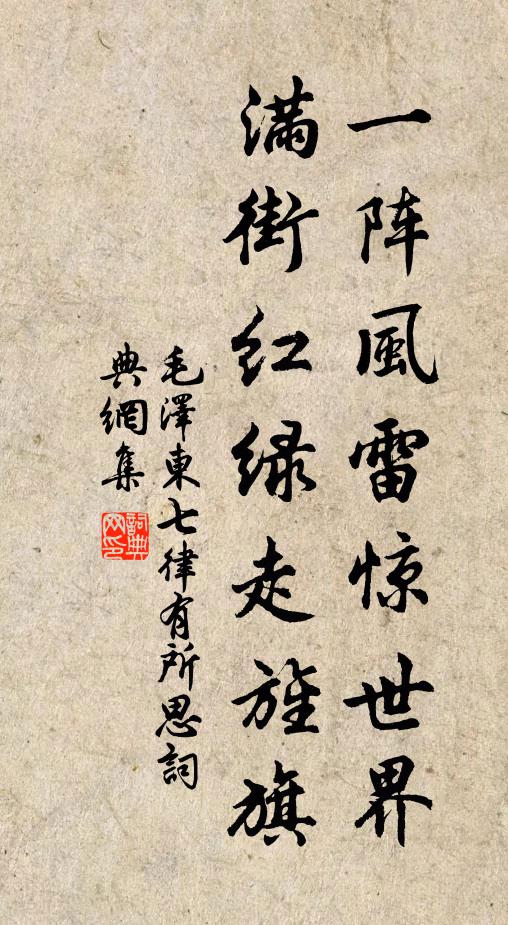 一阵風雷惊世界
滿街红绿走旌旗
毛澤東七律有所思詞
典網集
詞典网印